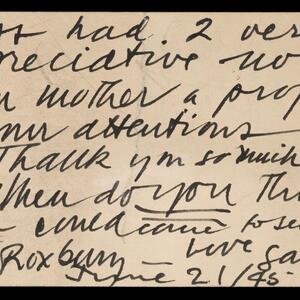 had 2 ver
reciative no
mother a prop
our attentions
Thank you so much
When do you thi
could come to se
Roxbury — Love ga
June 21/45